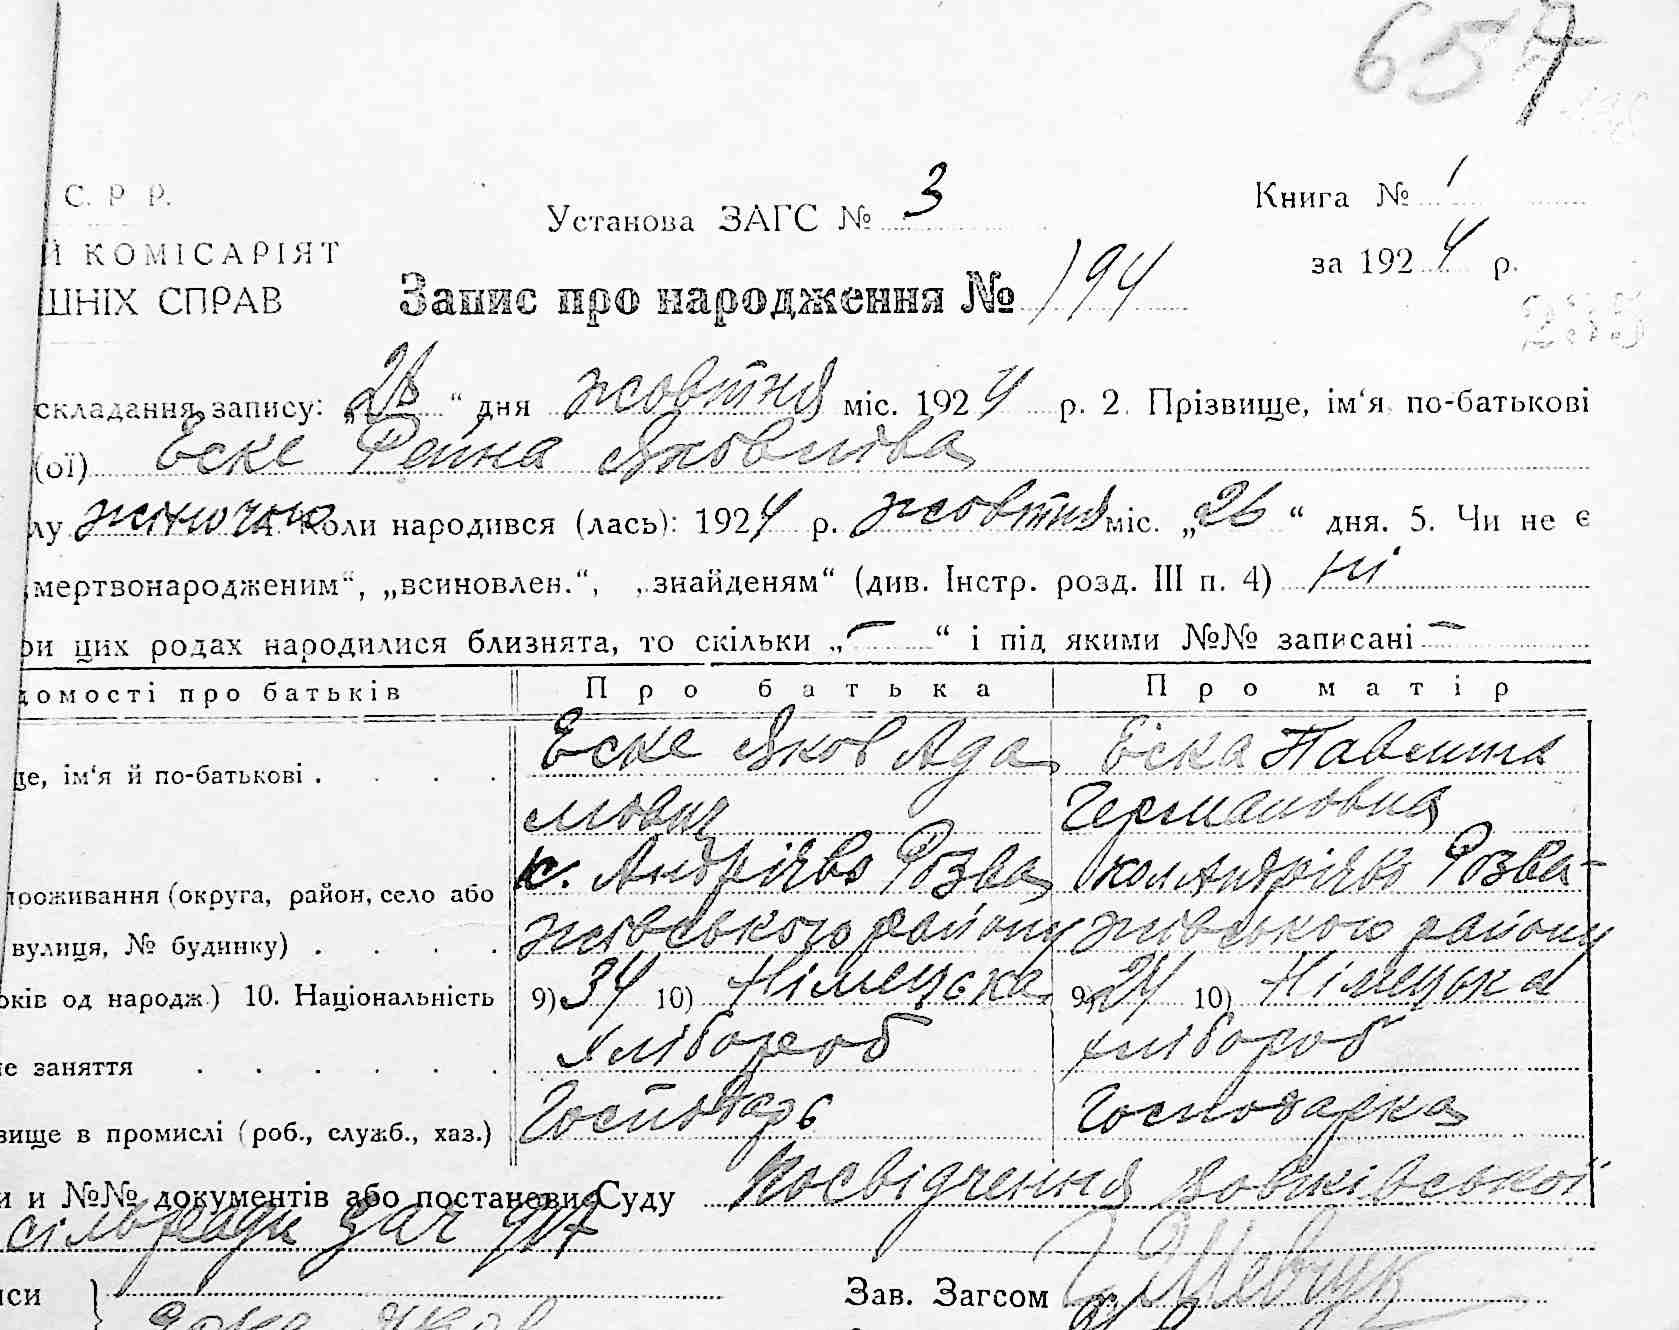 657
С. Р. Р.
Установа ЗАГС № 3
Книга № 1
Й КОМІСАРІЯТ
за 1924 р.
ШНІХ СПРАВ
Запис про народження № 194
складання запису: „26“ дня жовтня міс. 1924 р. 2. Прізвище, ім‘я, по-батькові
(ої) Еске Рейна Яковлівна
лу жіночого Коли народився (лась): 1924 р. жовтня міс. „26“ дня. 5. Чи не є
мертвонародженим“, „всиновлен.“, „знайденям“ (див. Інстр. розд. III п. 4) ні
ри цих родах народилися близнята, то скільки „—“ і під якими №№ записані —
домості про батьків Про батька Про матір
Еске Яков Ада Еска Павлина
це, ім‘я й по-батькові .
мович Германовна
к. Андріїво Розва кол Андріїво Розва-
проживання (округа, район, село або
жівського району жівського району
вулиця, № будинку) .
оків од народж.) 10. Національність 9) 34 10) Німецька 9) 24 10) Німецька
Хлібороб хлібороб
е заняття
Господарь Господарка
вище в промислі (роб., служб., хаз.)
и и №№ документів або постанови Суду Посвідчення Вовківської
сільради за ч 917
иси
Зав. Загсом Шевчук
Яков